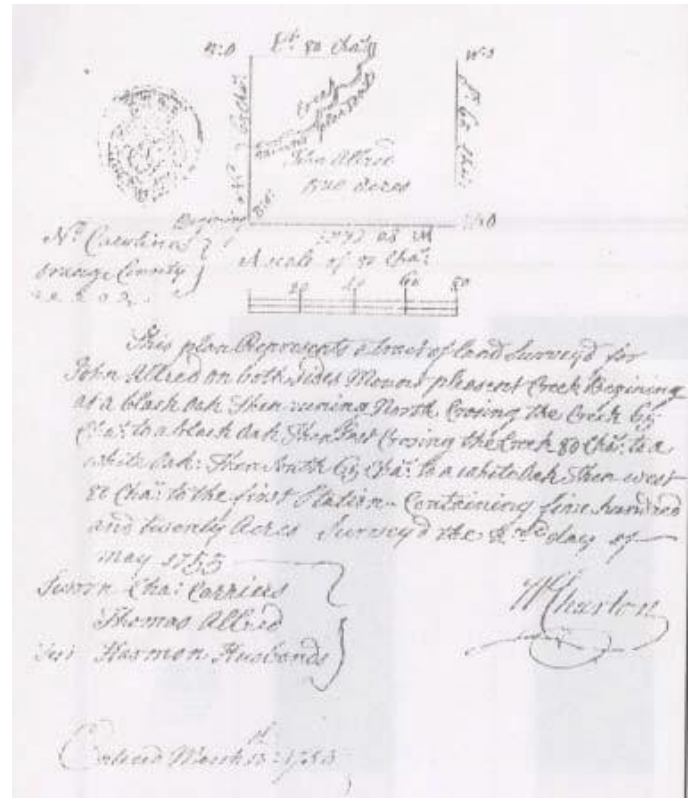 Et. 80 Cha:
W:O
No. 65 Cha:
So. 65 Cha:
Creek
mount pleasent
John Allred
520 Acres
Begining
W:O
Wt 80 Cha:
No. Carolina
Orange County
A scale of 80 Cha:
20 40 60 80
This plan Represents a tract of land Surveyd for
John Allred on both sides Mount pleasent Creek Begining
at a black Oak Then runing North Crosing the Creek 65
Cha: to a black Oak Then East Crosing the Creek 80 Cha: to a
white Oak: Then South 65 Cha: to a white Oak Then west
80 Cha: to the first Station - Containing five hundred
and twenty Acres Survey'd the 2nd day of
May 1755
Sworn Cha: Carriers
Thomas Allred
Harmon Husbands
WChurton
Entered March 13: 1753